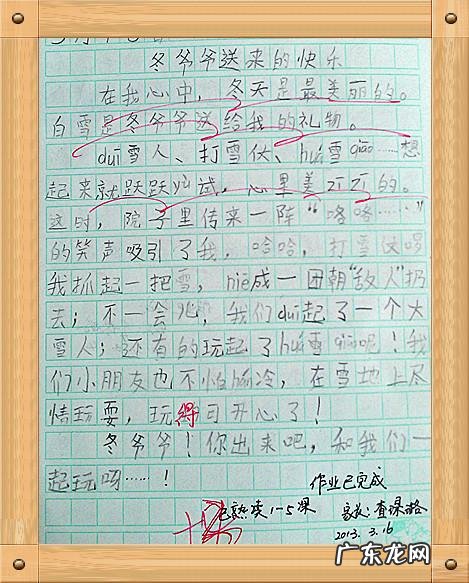 冬爷爷送来的快乐
在我心中，冬天是最美丽的。
白雪是冬爷爷送给我的礼物。
duī雪人、打雪仗、huá雪qiāo……想
起来就跃跃yù试，心里美zī zī的。
这时，院子里传来一阵“咯咯……”
的笑声吸引了我，哈哈，打雪仗啰
我抓起一把雪，niē成一团朝“敌人”扔
去；不一会儿，我们duī起了一个大
雪人；还有的玩起了huá雪qiāo呢！我
们小朋友也不怕hán冷，在雪地上尽
情玩耍，玩得可开心了！
冬爷爷！你出来吧，和我们一
起玩吗……！
作业已完成
已熟读1-5课
家长：查课
2013.3.16
广东龙网